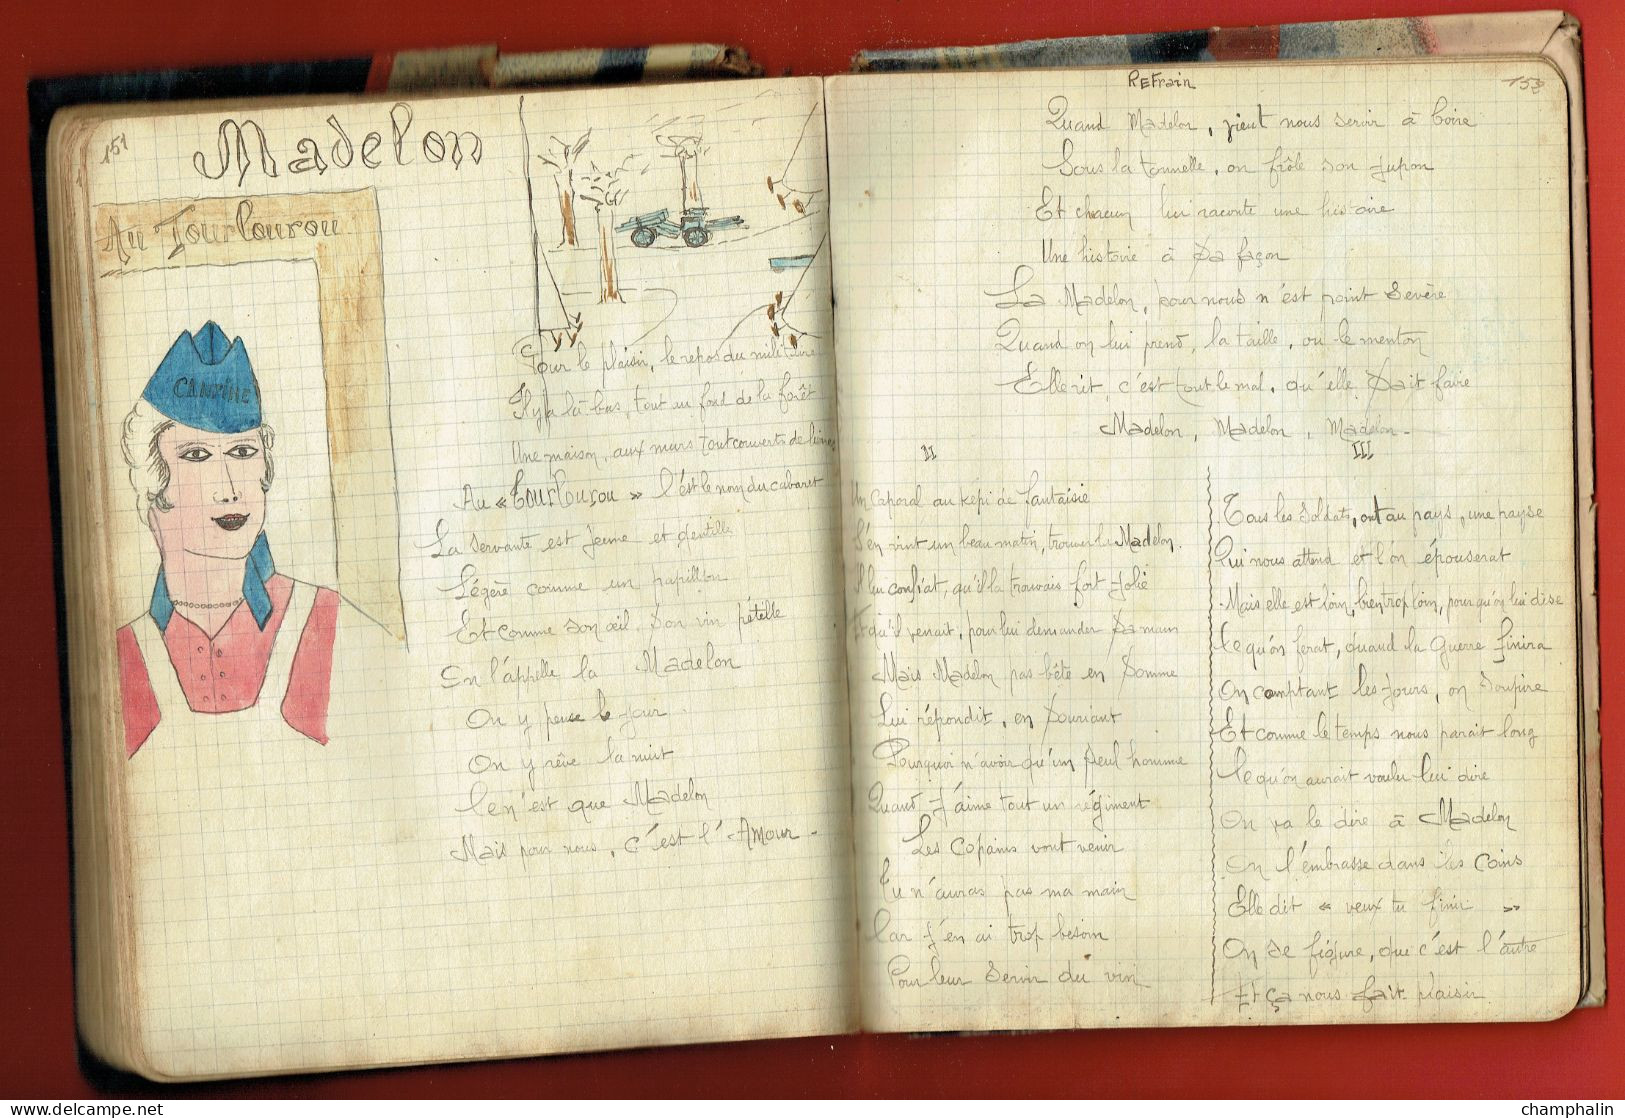 151
Madelon
Au Tourlourou
CANTINE
Pour le plaisir, le repos du militaire
Il y a là-bas, tout au fond de la forêt
Une maison, aux murs tout couverts de lierre
Au « Tourlourou » c'est le nom du cabaret
La servante est jeune et gentille
Légère comme un papillon
Et comme son œil, son vin pétille
On l'appelle la Madelon
On y pense le jour
On y rêve la nuit
Ce n'est que Madelon
Mais pour nous, c'est l'Amour -
REFrain
153
Quand Madelon, vient nous servir à boire
Sous la tonnelle, on frôle son jupon
Et chacun lui raconte une histoire
Une histoire à sa façon
La Madelon, pour nous n'est point sevère
Quand on lui prend, la taille, ou le menton
Elle rit, c'est tout le mal, qu'elle sait faire
Madelon, Madelon, Madelon -
II
Un caporal au képi de fantaisie
S'en vint un beau matin, trouver la Madelon.
Il lui confiat, qu'il la trouvais fort Jolie
Et qu'il venait, pour lui demander sa main
Mais Madelon pas bête en somme
Lui répondit, en souriant
Pourquoi n'avoir qu'un seul homme
Quand J'aime tout un régiment
Les copains vont venir
Tu n'auras pas ma main
Car J'en ai trop besoin
Pour leur servir du vin
III
Tous les soldats, ont au pays, une payse
Qui nous attend et l'on épouserat
Mais elle est loin, bien trop loin, pour qu'on lui dise
Ce qu'on ferat, quand la Guerre finira
On comptant les Jours, on soupire
Et comme le temps nous parait long
Ce qu'on aurait voulu lui dire
On va le dire à Madelon
On l'embrasse dans les coins
Elle dit « veux tu finir »
On se figure, que c'est l'autre
Et ça nous fait plaisir.
www.delcampe.net
champhalin